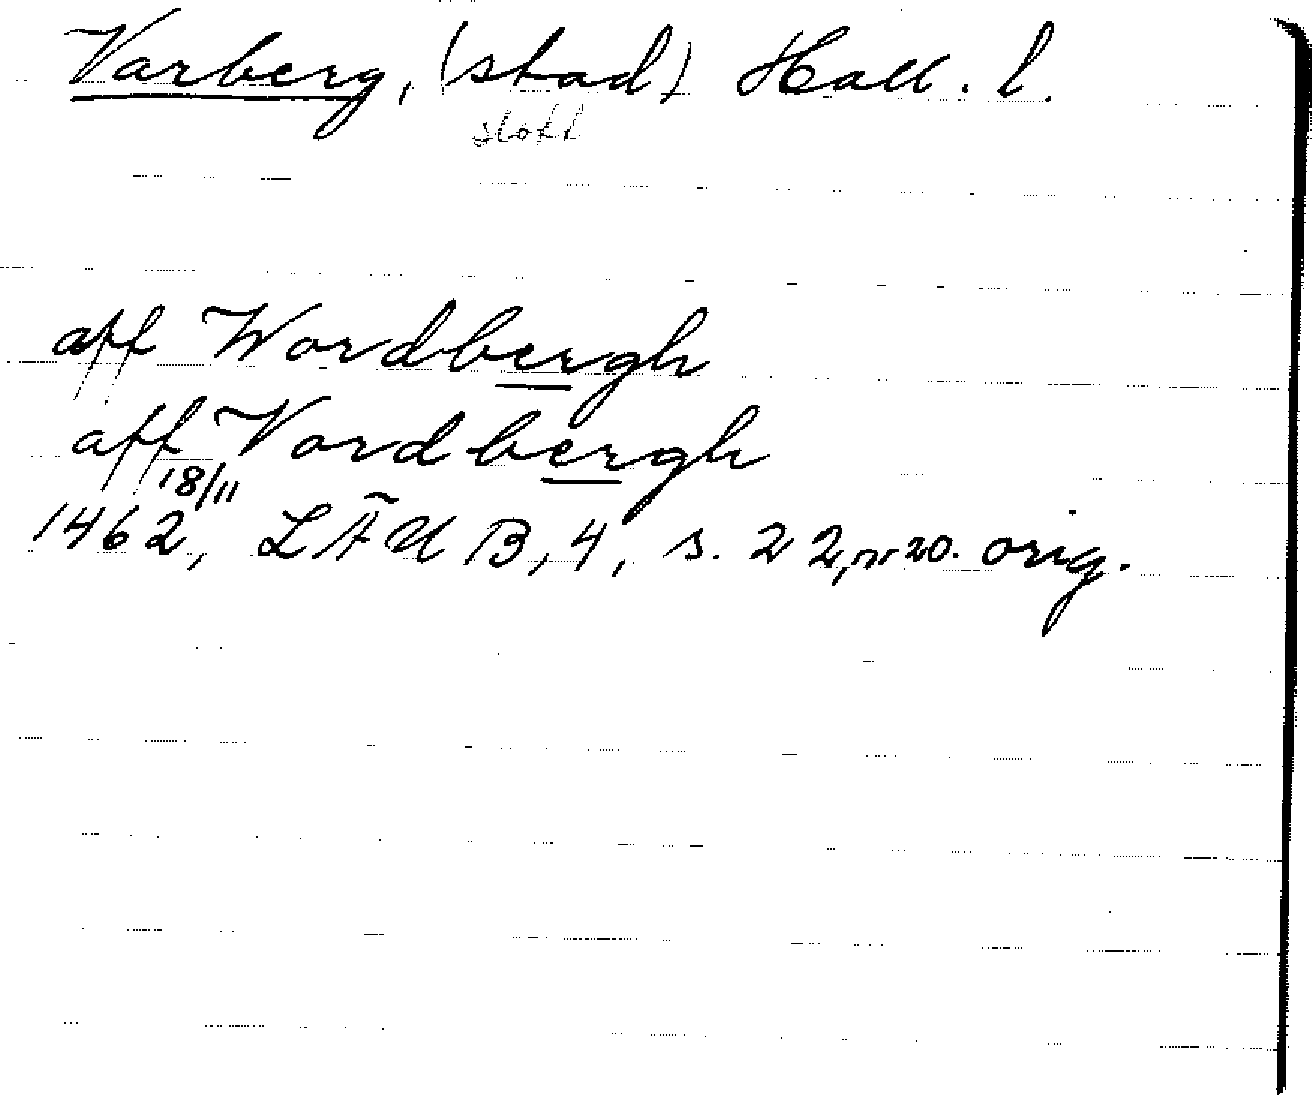 Varberg, (stad) Hall. l.
slott
aff Wordbergh
aff Vordbergh
18/11
1462, LÄUB, 4, s. 22, nr 20. orig.